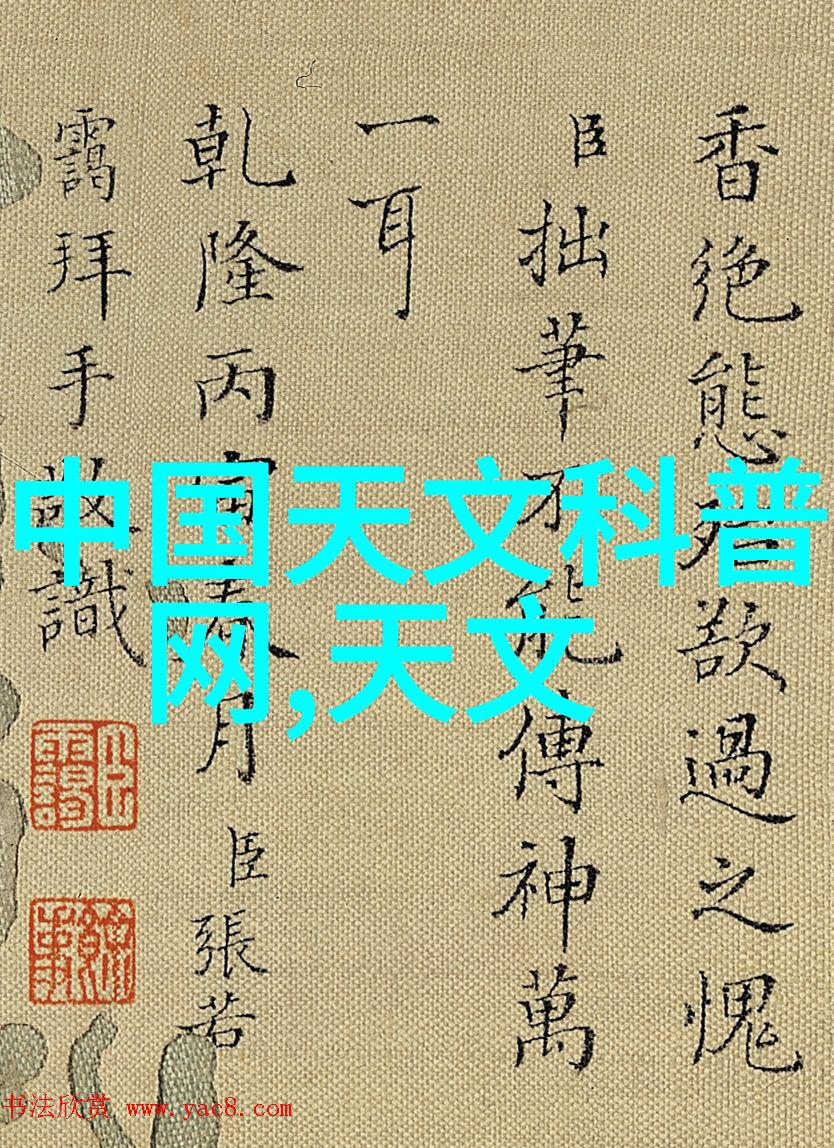 香绝態殆欲過之愧
臣拙筆不能傳神萬
一耳
乾隆丙寅春月臣張若
靄拜手敬識
中国天文科普
网,天文
书法欣赏 www.yac8.com